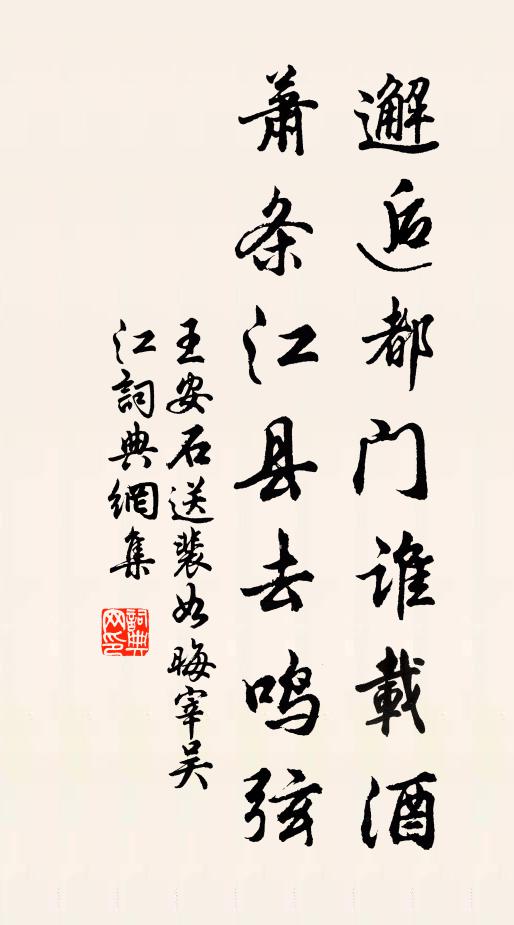 邂逅都门谁載酒
蕭条江县去鸣弦
王安石送裴如晦宰吴
江詞典網集
詞典
网印